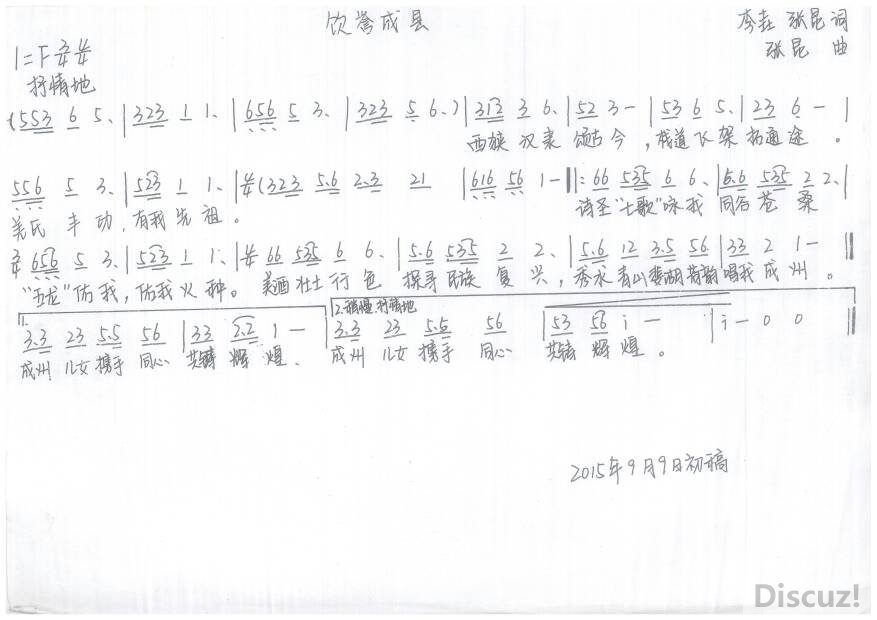 饮誉成县
李垚 张昆词
1=F 3/4 4/4
张昆 曲
抒情地
(553 6 5. | 323 1 1. | 656 5 3. | 323 5 6.) | 313 3 6. | 52 3 - | 53 6 5. | 23 6 - |
西狭汉隶颂古今，栈道飞架拓通途。
556 5 3. | 523 1 1. | 4/4 (323 5.6 2.3 21 | 616 56 1 - ‖: 66 535 6 6. | 6.6 535 2 2. |
丰功，有我先祖。 诗圣"七歌"咏我 同谷苍桑
3/4 656 5 3. | 523 1 1. | 4/4 66 535 6 6. | 5.6 535 2 2. | 5.6 12 3.5 56 | 33 2 1 - ‖
"五龙"佑我，佑我火种。美酒壮行色 探寻民族复兴，秀水青山 唱我成州。
1. 2.稍慢 抒情地
3.3 23 5.5 56 | 33 2.2 1 - 3.3 23 5.5 56 | 53 56 i - | i - 0 0 ‖
成州儿女携手同心 共铸辉煌、成州儿女携手同心 共铸辉煌。
2015年9月9日初稿
Discuz!